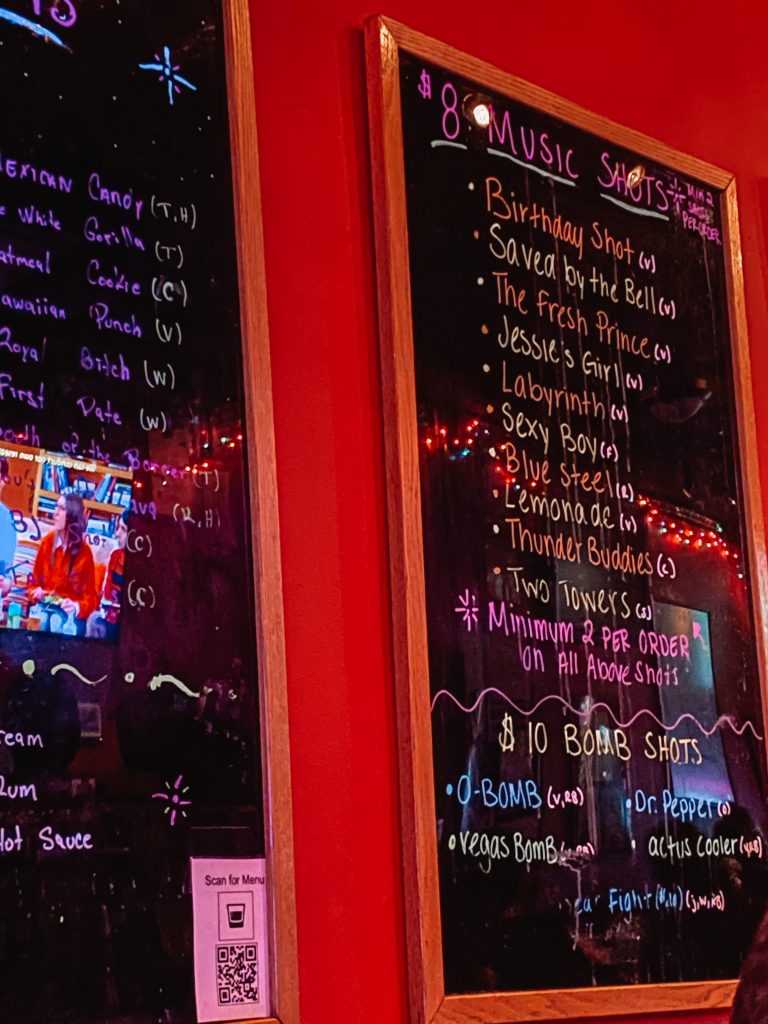 MEXICAN CANDY (T,H)
White Gorilla (T)
Oatmeal Cookie (C)
Hawaiian Punch (V)
Royal Bitch (W)
First Date (W)
of the Border (T)
(R,H)
(C)
(C)
Rum
Hot Sauce
Scan for Menu
$8 MUSIC SHOTS
MIN 2
SHOTS
PER ORDER
• Birthday Shot (V)
• Saved by the Bell (V)
• The Fresh Prince (V)
• Jessie's Girl (V)
• Labyrinth (V)
• Sexy Boy (F)
• Blue Steel (R)
• Lemonade (V)
• Thunder Buddies (C)
• Two Towers (S)
Minimum 2 PER ORDER
on All Above Shots
$10 BOMB SHOTS
• O-BOMB (V,RB)
• Dr. Pepper
• Vegas BomB
• actus Cooler
Fight (J,W,RB)